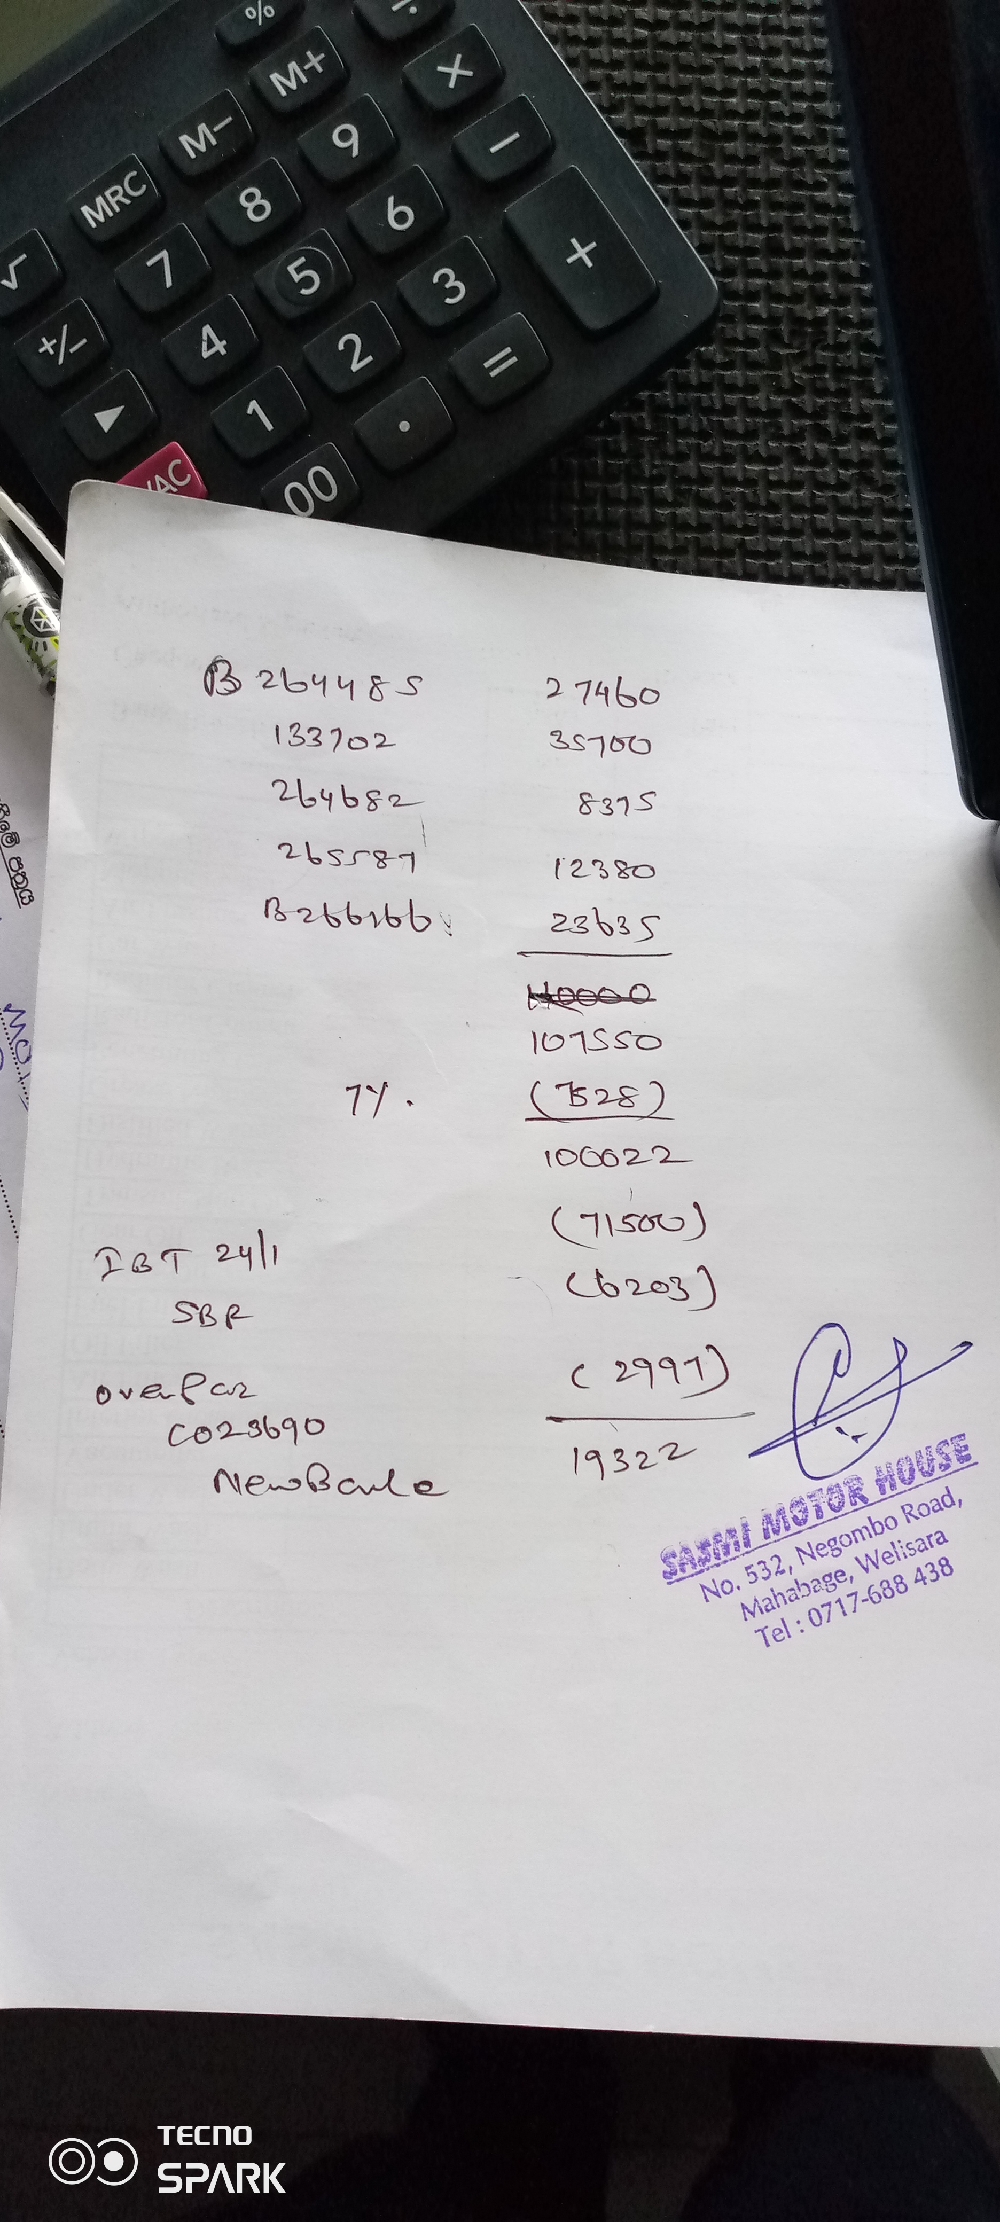 %
÷
M+
×
M−
9
−
MRC
8
6
+
√
7
5
3
+/−
4
2
=
▶
1
.
/AC
00
B 264485 27460
133702 35700
264682 8375
265587 12380
B266166 23635
107550
7%. (7528)
100022
(71500)
IBT 24/1
(6203)
SBR
(2997)
overpaz
C023690
19322
SASMI MOTOR HOUSE
No. 532, Negombo Road,
Mahabage, Welisara
Tel : 0717-688 438
TECNO
SPARK